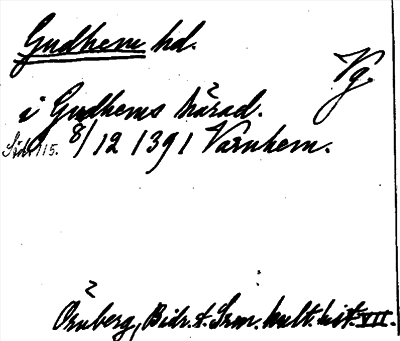 Gudhem hd.
Vg.
i Gudhems härad.
8/12 1391 Varnhem.
Örnberg, Bidr. t. Srm. kult. hist. VII.